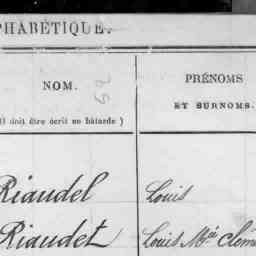 PHABÉTIQUE.
NOM.
PRÉNOMS
ET SURNOMS.
Il doit être écrit en bâtarde )
62
Riaudel Louis
Riaudet Louis M.ie Clém